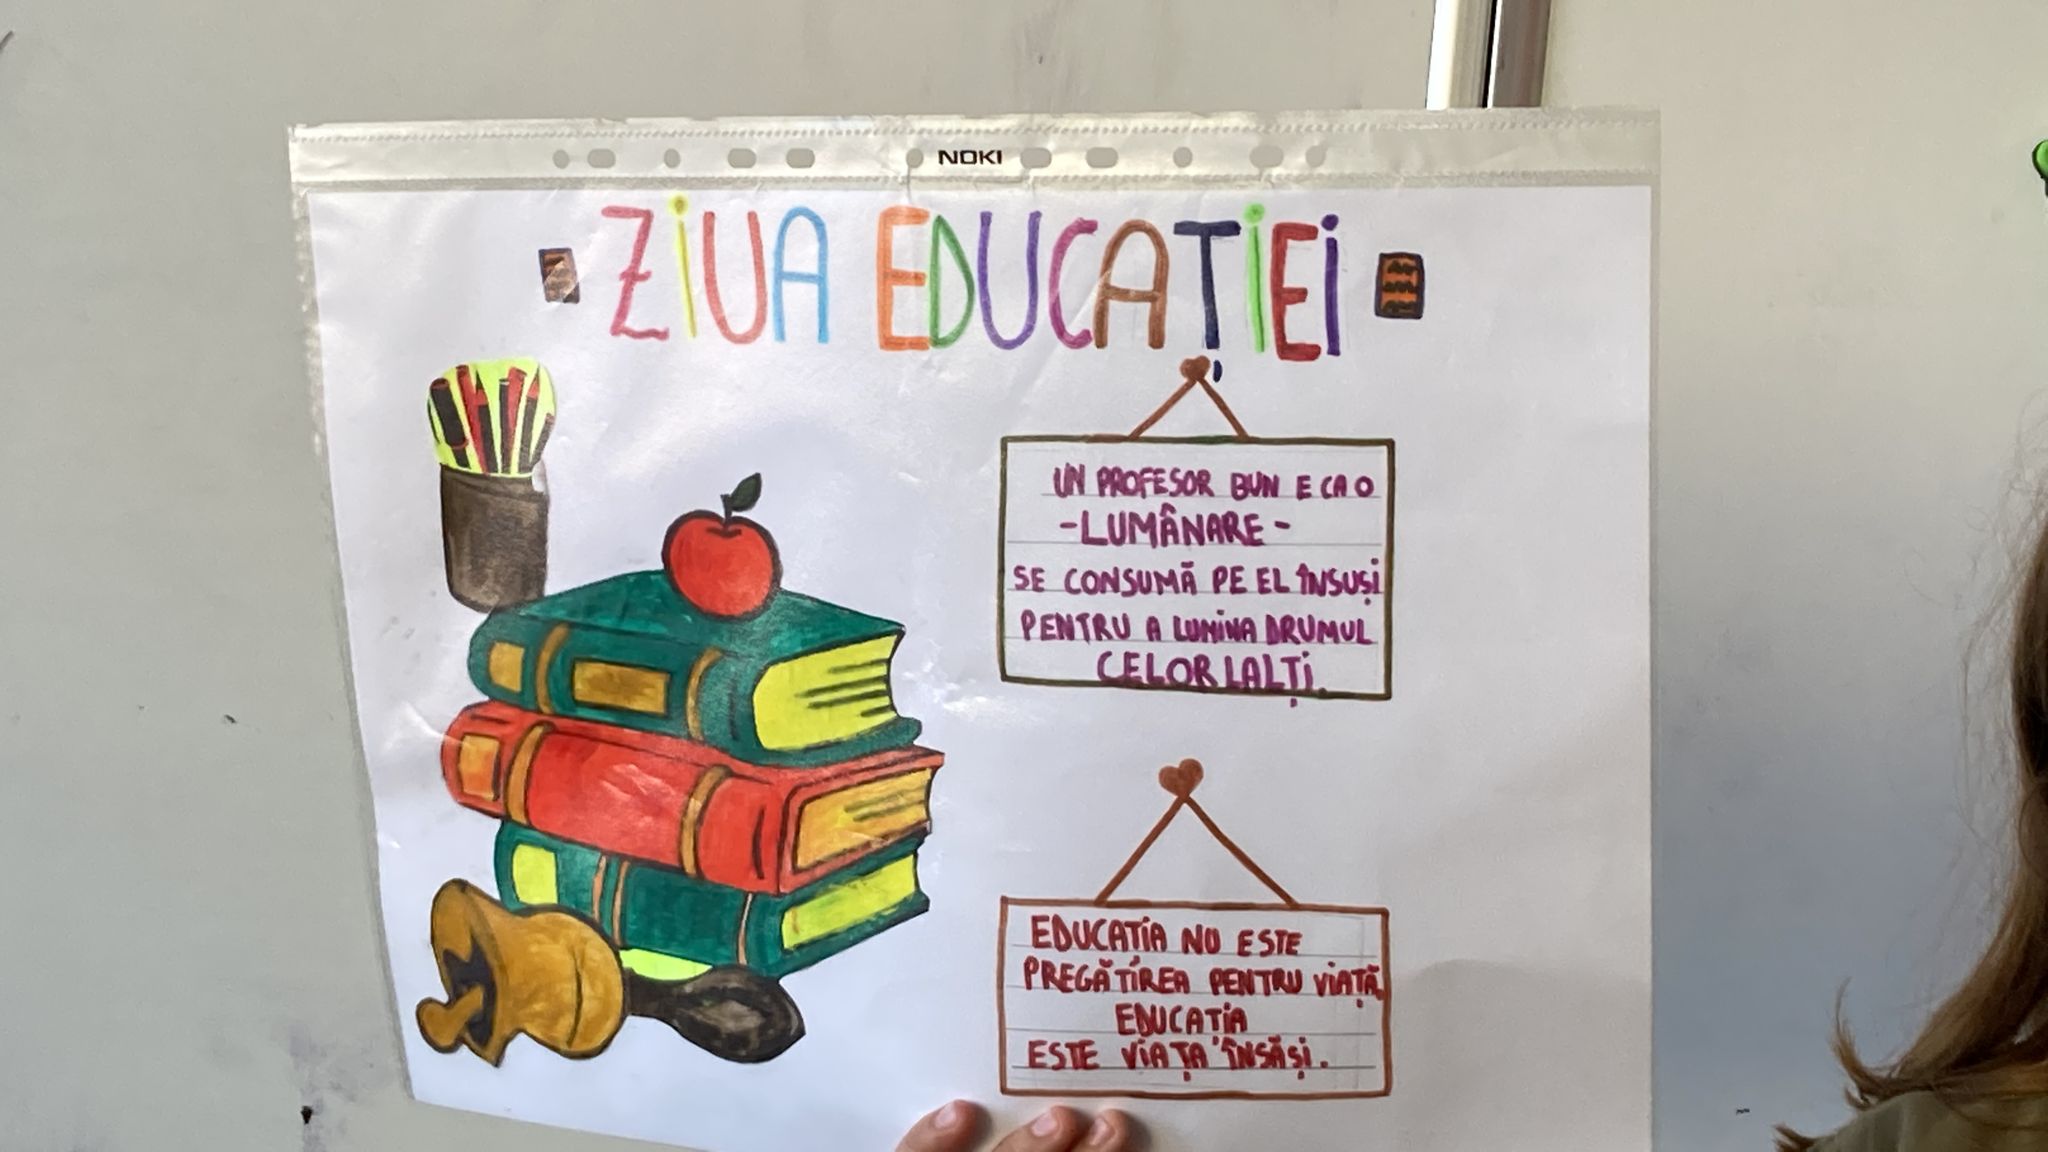 NOKI
ZIUA EDUCAȚIEI
UN PROFESOR BUN E CA O
-LUMÂNARE-
SE CONSUMĂ PE EL ÎNSUȘI
PENTRU A LUMINA DRUMUL
CELORLALȚI.
EDUCATIA NU ESTE
PREGĂTIREA PENTRU VIAȚĂ,
EDUCATIA
ESTE VIAȚA ÎNSĂȘI.